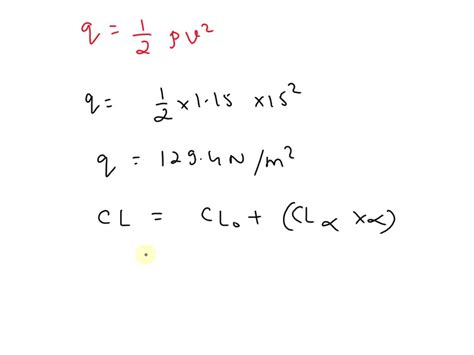 q = 1/2 ρv²
q = 1/2 × 1.15 × 15²
q = 129.4 N/m²
CL = CL₀ + (CL∝ × ∝)